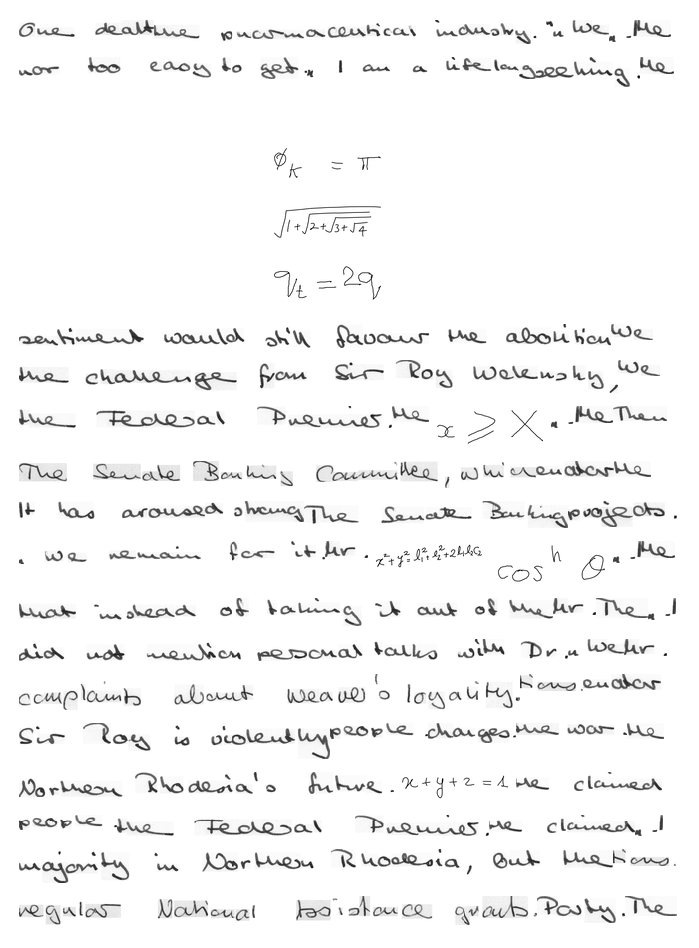 One dealt the pharmaceutical industry. " We " . He
nor too easy to get . " I am a lifelong seeking . He
\phi_K = \pi
\sqrt{1+\sqrt{2+\sqrt{3+\sqrt{4}}}}
q_t = 2q
sentiment would still favour the abolition We
the challenge from Sir Roy Welensky , We
the Federal Premier . He x \geqslant X " . He Then
The Senate Banking Committee , which
It has aroused strong The Senate Banking projects .
. We remain for it Mr . x^2+y^2=l_1^2+l_2^2+2l_1l_2c_2 \cos^h \theta " . He
that instead of taking it out of the Mr . The " . I
did not mention personal talks with Dr . " We Mr .
complaints about Weaver's loyality .
Sir Roy is violently people charges . the war . He
Northern Rhodesia's future . x + y + z = 1 He claimed
people the Federal Premier . He claimed " . I
majority in Northern Rhodesia , but the
regular National Assistance grants . Party . The